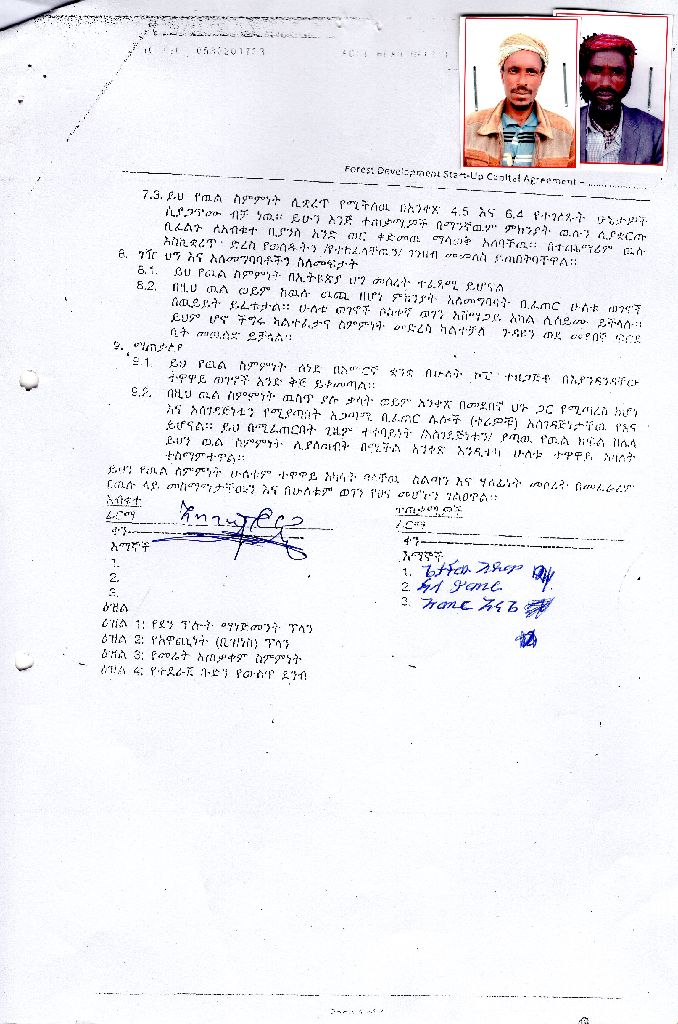 Forest Development Start-Up Capital Agreement -
7.3. ይህ የዉል ስምምነት ሊቋረጥ የሚችለዉ በአንቀጽ 4.5 እና 6.4 የተገለጹት ሁኔታዎች
ሲያጋጥሙ ብቻ ነዉ። ይሁን እንጅ ተጠቃሚዎች በማንኛዉም ምክንያት ዉሉን ሊያቋርጡ
ቢፈልጉ ለአብቁተ ቢያንስ አንድ ወር ቀድመዉ ማሳወቅ አለባቸዉ። በተጨማሪም ዉሉ
እስኪቋረጥ ድረስ የወሰዱትን /የተከፈላቸዉን/ ገንዘብ መመለስ ይጠበቅባቸዋል።
8. ገዥ ህግ እና አለመግባባቶችን ስለመፍታት
8.1. ይህ የዉል ስምምነት በኢትዮጵያ ህግ መሰረት ተፈጻሚ ይሆናል
8.2. በዚህ ዉል ወይም ከዉሉ ዉጪ በሆነ ምክንያት አለመግባባት ቢፈጠር ሁለቱ ወገኖች
በዉይይት ይፈቱታል። ሁለቱ ወገኖች ሶስተኛ ወገን አሸማጋይ አካል ሊሰይሙ ይችላሉ።
ይህም ሆኖ ችግሩ ካልተፈታና ስምምነት መድረስ ካልተቻለ ጉዳዩን ወደ መደበኛ ፍርድ
ቤት መዉሰድ ይቻላል።
9. ማጠቃለያ
9.1. ይህ የዉል ስምምነት ሰነድ በአማርኛ ቋንቋ በሁለት ኮፒ ተዘጋጅቶ በእያንዳንዳቸው
ተዋዋይ ወገኖች እንድ ቅጅ ይቀመጣል።
9.2. በዚህ ዉል ስምምነት ዉስጥ ያሉ ቃላት ወይም አንቀጽ በመደበኛ ህጉ ጋር የሚጣረስ ከሆነ
እና አስገዳጅነቱን የሚያጣበት አጋጣሚ ቢፈጠር ሌሎች (ቀሪዎቹ) አስገዳጅነታቸዉ የጸና
ይሆናል። ይህ በሚፈጠርበት ጊዜም ተቀባይነት /አስገዳጅነቱን/ ያጣዉ የዉል ክፍል በሌላ
ይህን ዉል ስምምነት ሊያስጠብቅ በሚችል አንቀጽ እንዲተካ ሁለቱ ተዋዋይ አካላት
ተስማምተዋል።
ይህን የዉል ስምምነት ሁለቱም ተዋዋይ አካላት ባላቸዉ ስልጣን እና ሃላፊነት መሰረት በመፈራረም
በዉሉ ላይ መስማማታቸዉን እና በሁለቱም ወገን የጸና መሆኑን ገልፀዋል።
አብቁተ
ተጠቃሚዎች
ፊርማ
ፊርማ
ቀን
ቀን
እማኞች
እማኞች
1.
2.
3.
1.
2.
3.
ዕዝል
ዕዝል 1: የደን ፕሎት ማነጅመንት ፕላን
ዕዝል 2: የአዋጪነት (ቢዝነስ) ፕላን
ዕዝል 3: የመሬት አጠቃቀም ስምምነት
ዕዝል 4: የተደራጀ ቡድን የውስጥ ደንብ